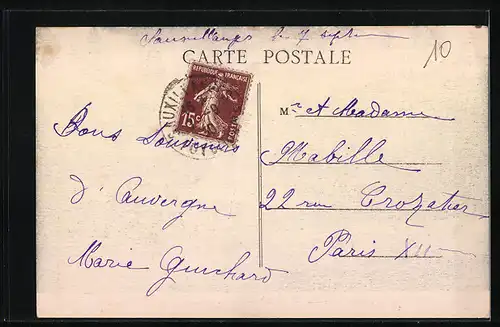 Sauxillanges le 7 septe
CARTE POSTALE
10
REPUBLIQUE FRANÇAISE
15c
AUXILL
Bons Souvenirs
d'Auvergne
Marie Guichard
M r et Madame
Mabille
22 rue Crozatier
Paris XII